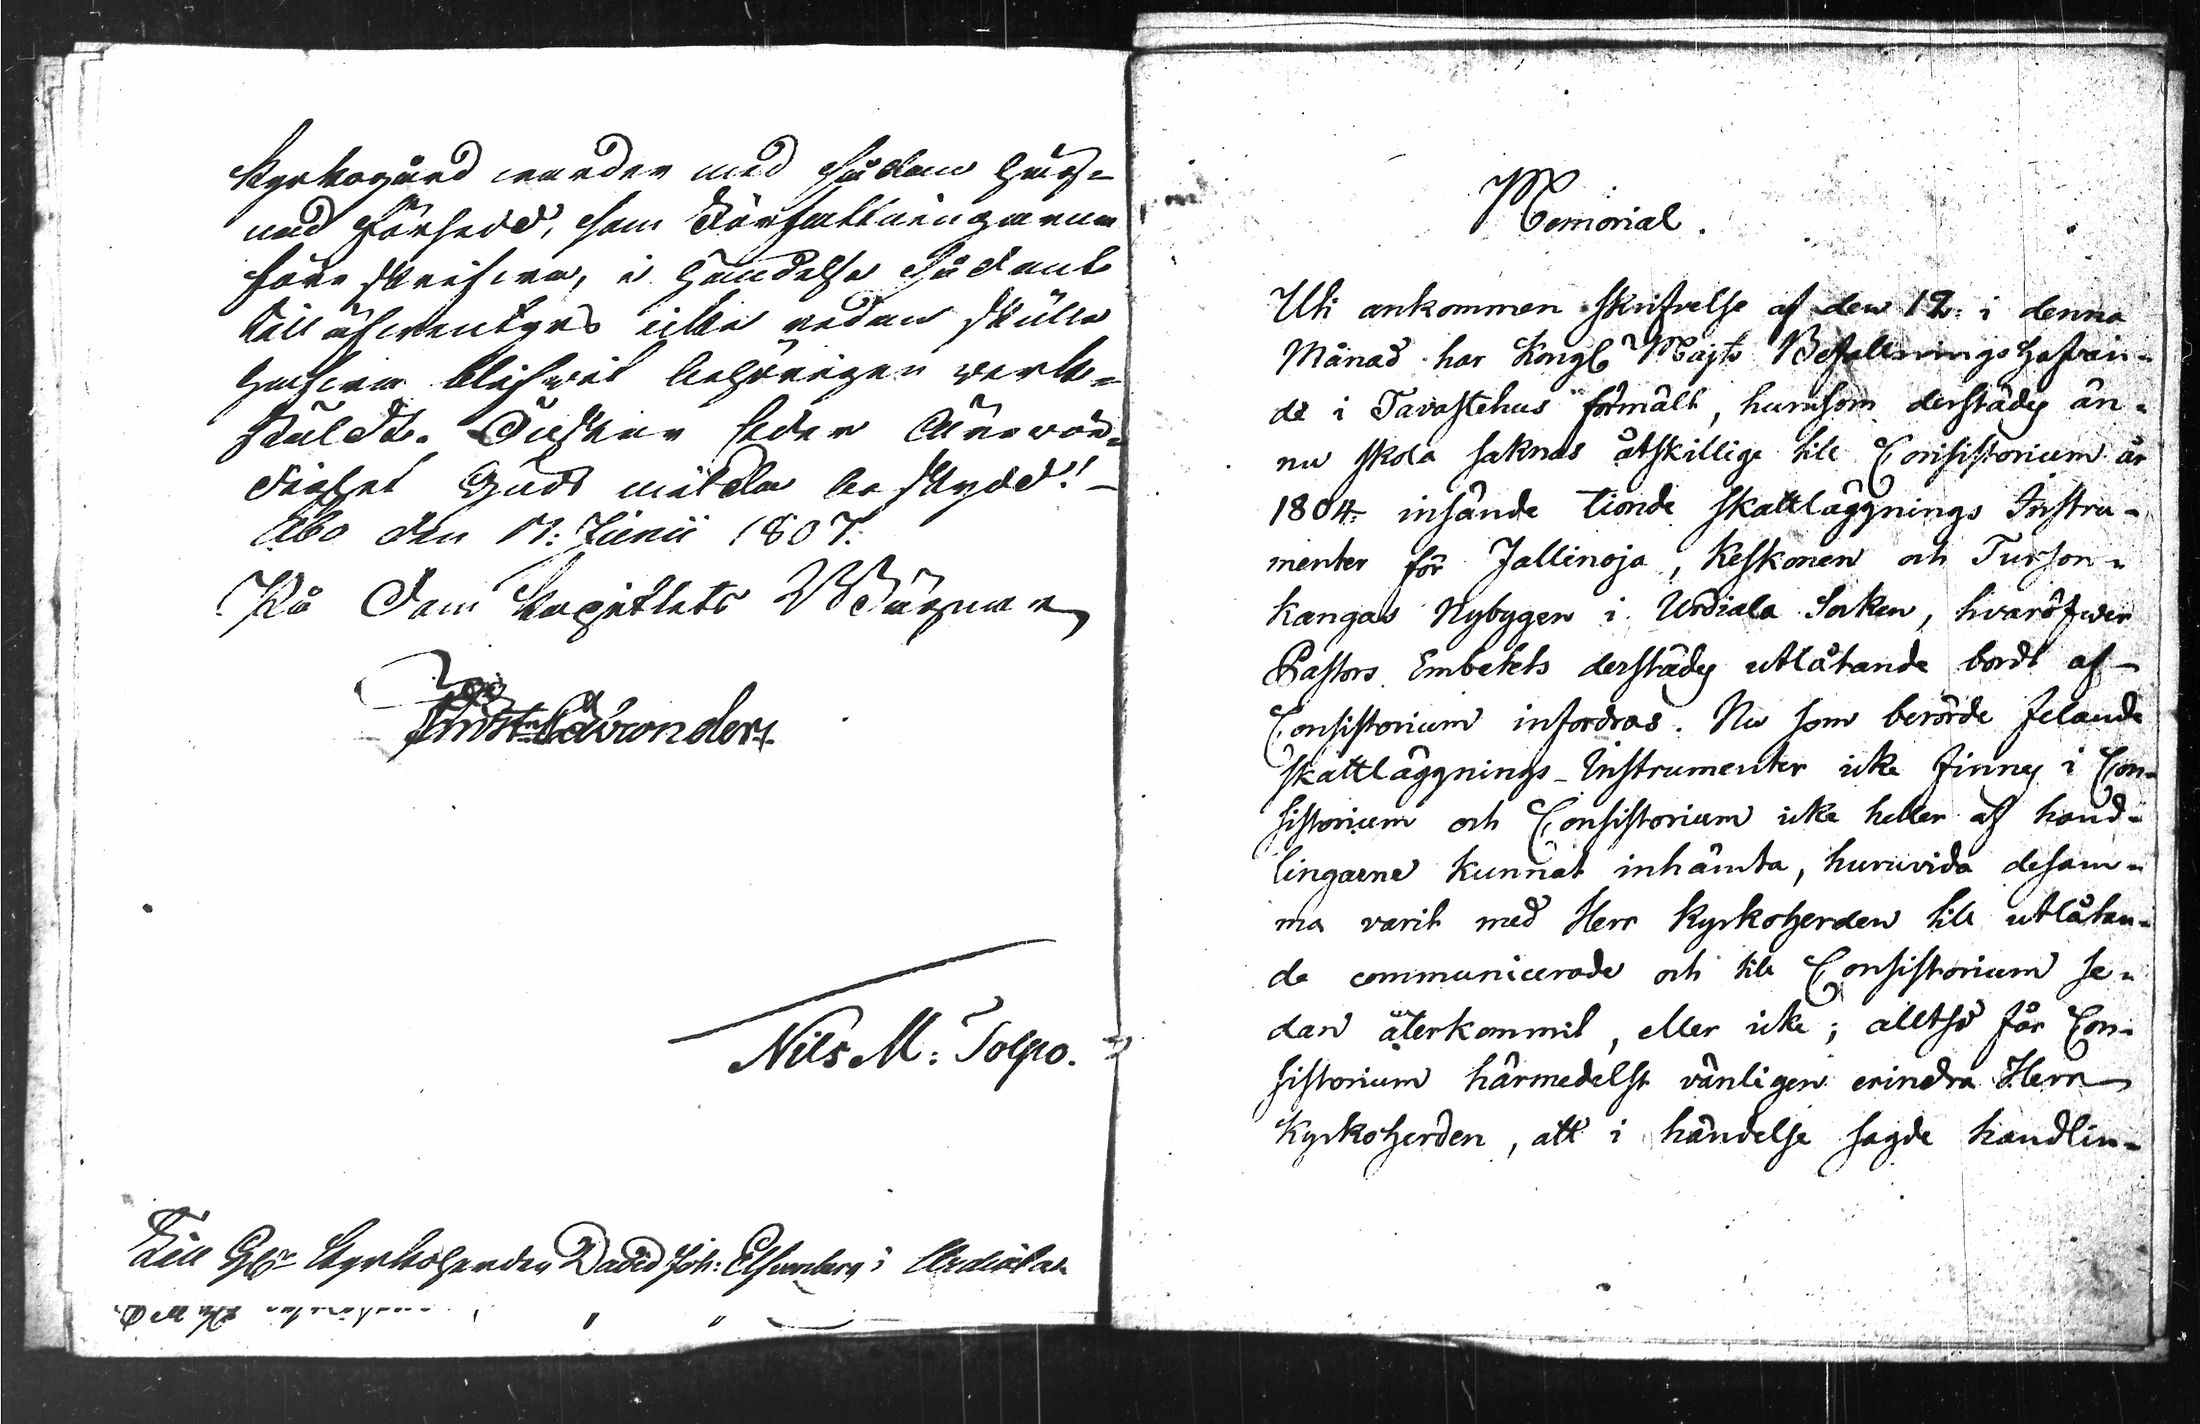 Kyrkogård warder med sådan häg-
nad försedd, som Författningarna
föreskrifwa, i händelse sådant
tilläfwentyrs icke redan skulle
hafwa blifwit behörigen werk-
stäldt. Önskar Eder Ärewör-
dighet Guds milda beskydd!
Åbo den 17: Junii 1807.
På Dom Capitlets Wägnar
Nils M: Tolpo.
Till Kyrkoherden David Joh: i Urdiala
Memorial.
Uti ankommen skrifvelse af den 12: i denna
Månad har Kongl Majts Befallningshafvan-
de i Tavastehus förmält, hurusom derstädes än-
nu skola saknas åtskillige till Consistorium år
1804 insände tionde skattläggnings Instru-
menter för Jallinoja, Keskonen och Turson-
kangas Nybygen i Urdiala Soken, hvaröfwer
Pastors Embetets derstädes utlåtande bordt af
Consistorium infordras. Nu som berörde felande
skattläggnings-Instrumenter icke finnes i Con-
sistorium och Consistorium icke heller af hand-
lingarne kunnat inhämta, huruvida desam-
ma varit med Herr Kyrkoherden till utlåtan-
de communicerade och till Consistorium se-
dan återkommit, eller icke; alltså får Con-
sistorium härmedelst vänligen erindra Herr
Kyrkoherden, att i händelse sagde handlin-